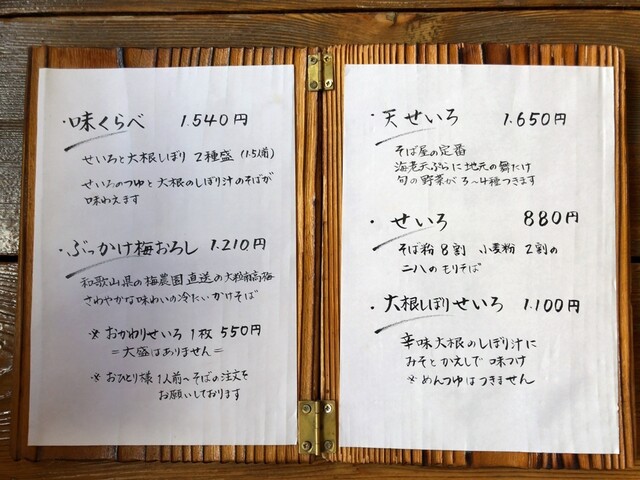 ・味くらべ 1.540円
せいろと大根しぼり 2種盛 (1.5人前)
せいろのつゆと大根のしぼり汁のそばが
味わえます
・ぶっかけ梅おろし 1.210円
和歌山県の梅農園直送の大粒南高梅
さわやかな味わいの冷たいかけそば
※おかわりせいろ 1枚 550円
=大盛はありません=
※おひとり様 1人前〜そばの注文を
お願いしております
・天せいろ 1.650円
そば屋の定番
海老天ぷらに地元の舞たけ
旬の野菜が3〜4種つきます
・せいろ 880円
そば粉8割 小麦粉2割の
二八のもりそば
・大根しぼりせいろ 1.100円
辛味大根のしぼり汁に
みそとかえしで味つけ
※めんつゆはつきません